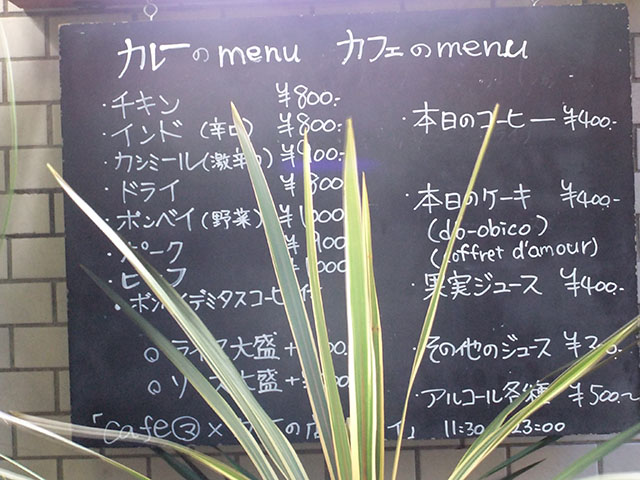 カレーのmenu
・チキン ¥800.-
・インド (辛口) ¥800.-
・カシミール(激辛) ¥900.-
・ドライ ¥800
・ボンベイ(野菜) ¥1000
・ポーク 900
・ビーフ
・ボンベイデミタスコーヒー付
○ライス大盛 +
○ソース大盛 +
カフェのmenu
・本日のコーヒー ¥400.-
・本日のケーキ ¥400.-
(do-obico)
(coffret d'amour)
・果実ジュース ¥400.-
・その他のジュース
・アルコール各種 ¥500.~
「cafe③× の店 イ」 11:30 23:00